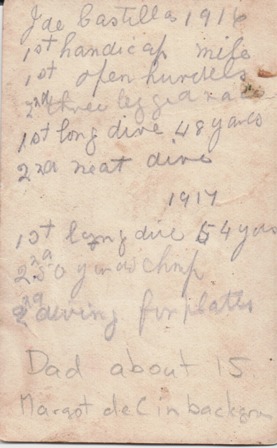 Joe Castilla 1916
1st handicap mile
1st open hurdels
2nd three legged ra
1st long dive 48 yards
2nd neat dive
1917
1st long dive 54 yds
2nd 50 yards chmp
2nd diving for plates
Dad about 15
Margot del C in backgrou